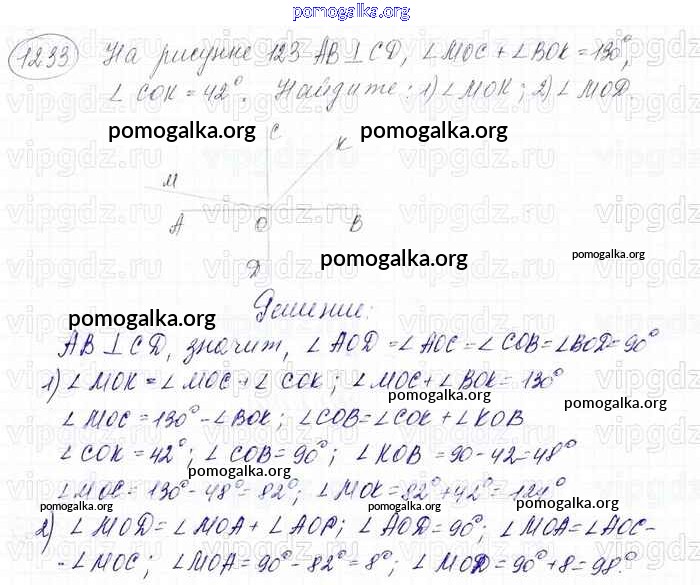 pomogalka.org
1233 На рисунке 123 AB⊥CD, ∠MOC + ∠BOK = 130°,
∠COK = 42°. Найдите: 1) ∠MOK; 2) ∠MOD
pomogalka.org C pomogalka.org
K
vipgdz.ru vipgdz.ru vipgdz.ru
M
A O B
pomogalka.org pomogalka.org
Д
Решение:
pomogalka.org pomogalka.org
AB⊥CD, значит, ∠AOD = ∠AOC = ∠COB = ∠BOD = 90°
1) ∠MOK = ∠MOC + ∠COK; ∠MOC + ∠BOK = 130°
pomogalka.org
∠MOC = 130° - ∠BOK; ∠COB = ∠COK + ∠KOB
pomogalka.org
∠COK = 42°; ∠COB = 90°; ∠KOB = 90-42=48°
pomogalka.org
∠MOC = 130°-48°=82°; ∠MOK=82°+42°=124°
pomogalka.org
2) ∠MOD = ∠MOA + ∠AOD; ∠AOD = 90°; ∠MOA = ∠AOC-
- ∠MOC; ∠MOA = 90°-82°=8°; ∠MOD = 90°+8=98°
pomogalka.org